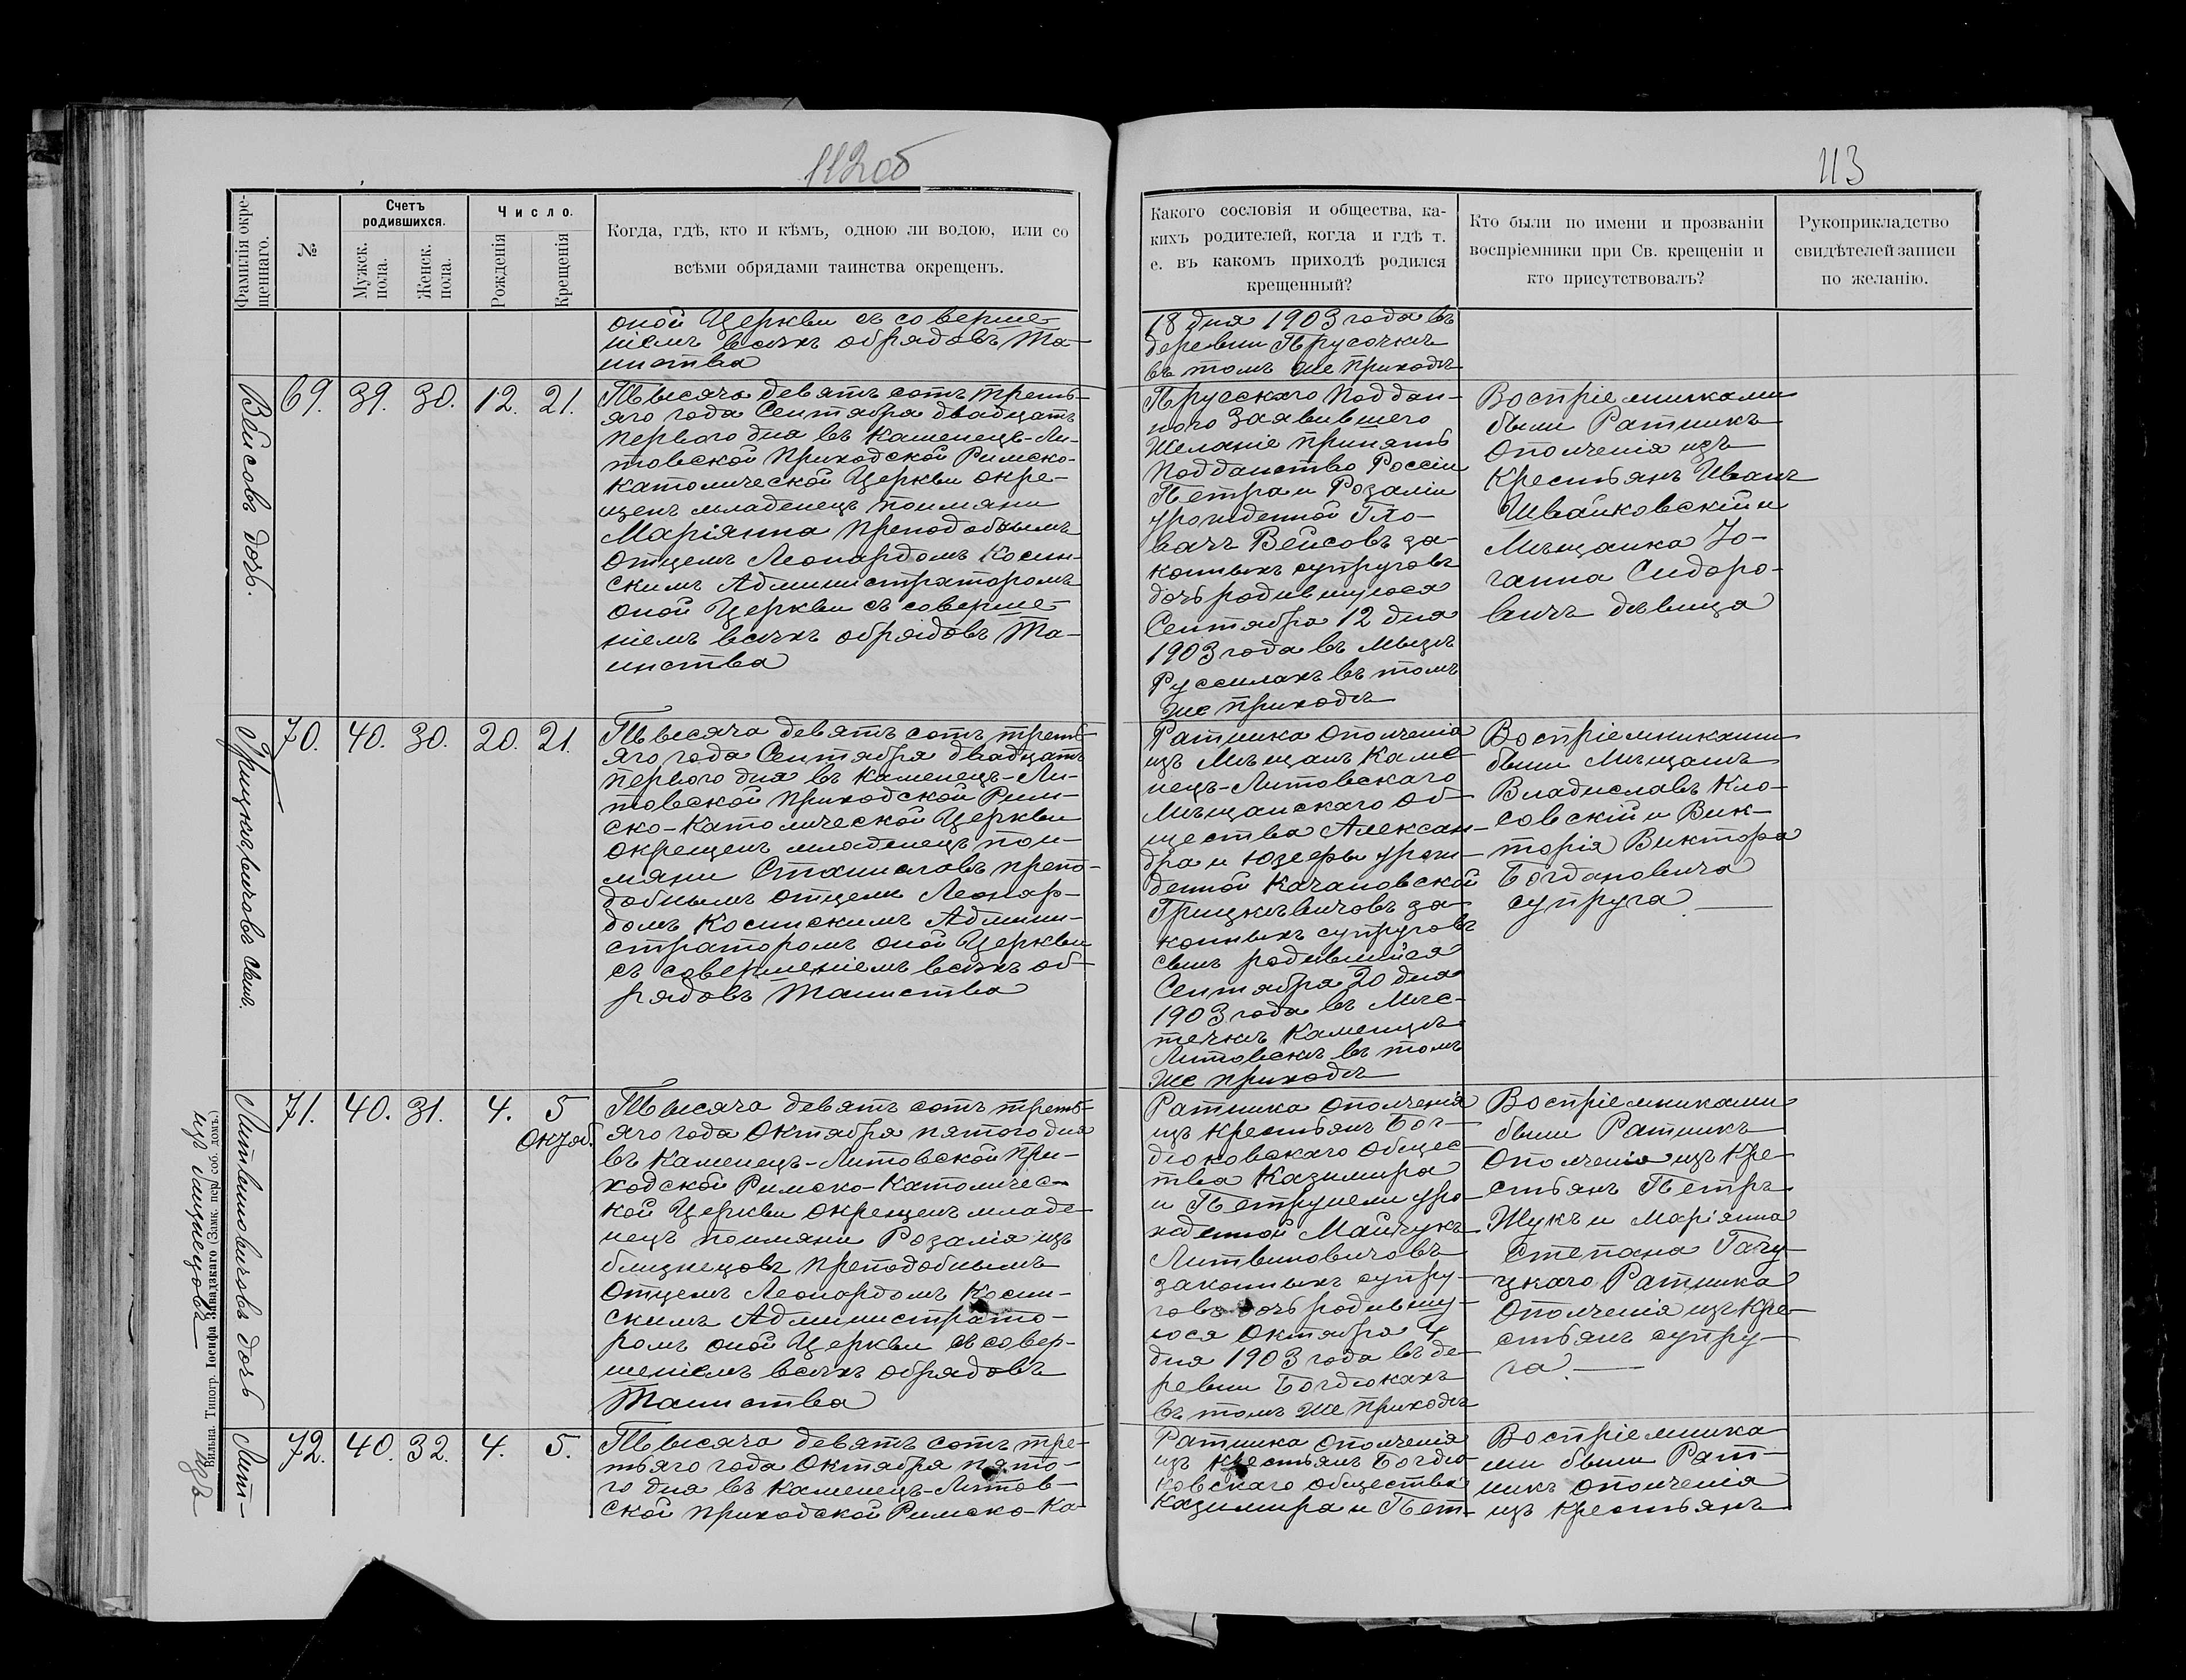 112об
113
Фамилія окре-
щеннаго.
№
Счетъ
родившихся.
Мужск.
пола.
Женск.
пола.
Число.
Рожденія
Крещенія
Когда, гдѣ, кто и кѣмъ, одною ли водою, или со
всѣми обрядами таинства окрещенъ.
Какого сословія и общества, ка-
кихъ родителей, когда и гдѣ т.
е. въ какомъ приходѣ родился
крещенный?
Кто были по имени и прозваніи
воспріемники при Св. крещеніи и
кто присутствовалъ?
Рукоприкладство
свидѣтелей записи
по желанію.
оной Церкви съ соверше-
ніемъ всѣхъ обрядовъ Та-
инства
18 дня 1903 года въ
деревни Прусочкъ
въ томъ же приходѣ
Вейсовъ дочь.
69. 39. 30. 12. 21.
Тысяча девятъ сотъ треть-
яго года Сентября двадцатъ
перваго дня въ Каменецъ-Ли-
товской Приходской Римско-
Католической Церкви окре-
щенъ младенецъ поимяни
Маріянна Преподобнымъ
Отцемъ Леонардомъ Косин-
скимъ Администраторомъ
оной Церкви съ соверше-
ніемъ всѣхъ обрядовъ Та-
инства
Прусскаго Поддан-
ного Заявившего
Желаніе принять
Подданство Россіи
Петра и Розаліи
урожденной Гло-
вачъ Вейсовъ за-
конныхъ супруговъ
дочь родившуюся
Сентября 12 дня
1903 года въ Мызѣ
Руссилахъ въ томъ
же приходѣ
Воспріемниками
были Ратникъ
Ополченія изъ
Крестьянъ Иванъ
Швайковскій и
Мѣщанка Іо-
ганна Сидоро-
вичъ дѣвица
Грицкѣвичовъ сынъ.
70. 40. 30. 20. 21.
Тысяча девятъ сотъ треть-
яго года Сентября двадцатъ
перваго дня въ Каменецъ-Ли-
товской приходской Рим-
ско-Католической Церкви
окрещенъ младенецъ пои-
мяни Станиславъ препо-
добнымъ отцемъ Леонар-
домъ Косинскимъ Админи-
страторомъ оной Церкви
съ совершеніемъ всѣхъ об-
рядовъ Таинства
Ратника Ополченія
изъ Мѣщанъ Каме-
нецъ-Литовскаго
Мѣщанскаго Об-
щества Алексан-
дра и Юзефы урож-
денной Качановской
Грицкѣвичовъ за-
конныхъ супруговъ
сынъ родившійся
Сентября 20 дня
1903 года въ Мѣс-
течкѣ Каменцѣ-
Литовскѣ въ томъ
же приходѣ
Воспріемниками
были Мѣщанъ
Владиславъ Кло-
совскій и Вик-
торія Виктора
Богдановича
супруга
Литвиновичовъ дочь
изъ близнецовъ
71. 40. 31. 4. 5
Октяб.
Тысяча девятъ сотъ треть-
яго года Октября пятого дня
въ Каменецъ-Литовской При-
ходской Римско-Католичес-
кой Церкви окрещенъ младе-
нецъ поимяни Розалія изъ
близнецовъ преподобнымъ
Отцемъ Леонардомъ Косин-
скимъ Администрато-
ромъ оной Церкви съ совер-
шеніемъ всѣхъ обрядовъ
Таинства
Ратника Ополченія
изъ крестьянъ Бог-
дюковскаго Общес-
тва Казимира
и Петрунели уро-
жденной Майчукъ
Литвиновичовъ
законныхъ супру-
говъ дочь родившу-
юся Октября 4
дня 1903 года въ де-
ревни Богдюкахъ
въ томъ же приходѣ
Воспріемниками
были Ратникъ
Ополченія изъ кре-
стьянъ Петръ
Жукъ и Маріянна
Степана Гачу-
цкаго Ратника
Ополченія изъ кре-
стьянъ супру-
га.
Лит-
72. 40. 32. 4. 5.
Тысяча девятъ сотъ тре-
тьяго года Октября пято-
го дня въ Каменецъ-Литов-
ской приходской Римско-Ка-
Ратника Ополченія
изъ крестьянъ Богдю-
ковскаго общества
Казимира и Пет-
Воспріемника-
ми были Рат-
никъ ополченія
изъ крестьянъ
Вильна. Типогр. Іосифа Завадзкаго (Замк. пер. соб. домъ.)